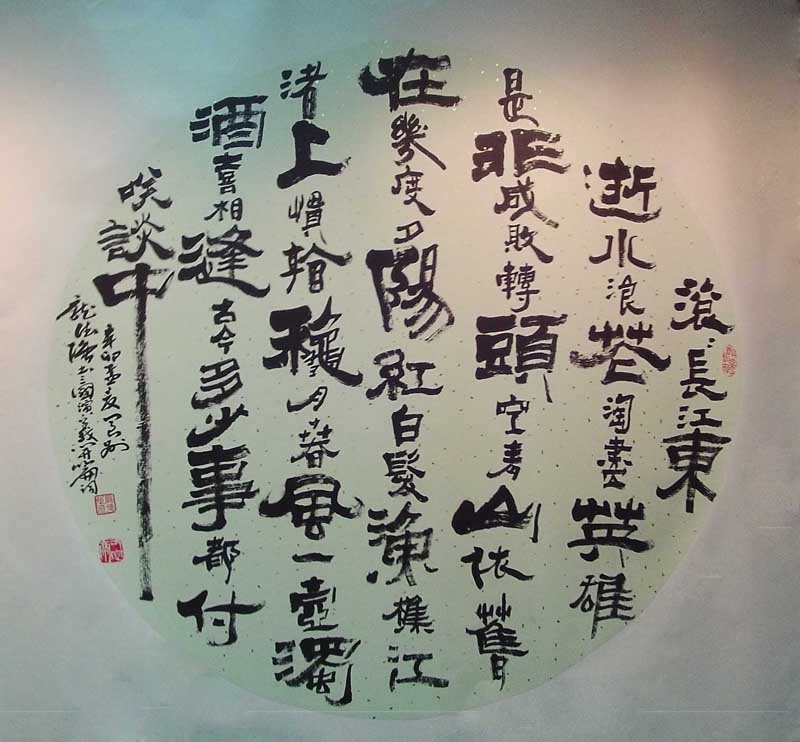 滾滾長江東
逝水浪花淘盡英雄
是非成敗轉頭空青山依舊
在幾度夕陽紅白髮漁樵江
渚上慣看秋月春風一壺濁
酒喜相逢古今多少事都付
笑談中
辛卯孟夏
書三國演義開篇詞